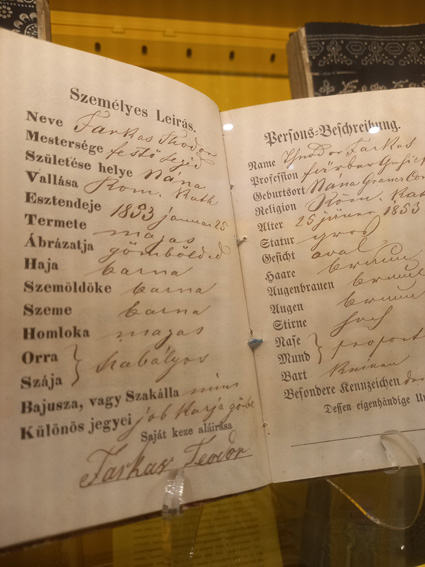 Személyes Leírás.
Neve Farkas Teodor
Mestersége festő legid
Születése helye Nána
Vallása Rom. Kath
Esztendeje 1833 januar 25
Termete magas
Ábrázatja gömbölded
Haja barna
Szemöldöke barna
Szeme barna
Homloka magas
Orra
Szája } szabályos
Bajusza, vagy Szakálla nincs
Különös jegyei job karja görbe
Saját keze aláirása
Farkas Teodor
Persons-Beschreibung.
Name Theodor Farkas
Profession Färber
Geburtsort Nana
Religion Röm. Kath
Alter 25 1853
Statur groß
Gesicht oval
Haare braun
Augenbrauen braun
Augen braun
Stirne hoch
Nase
Mund } proport
Bart
Besondere Kennzeichen
Dessen eigenhändige